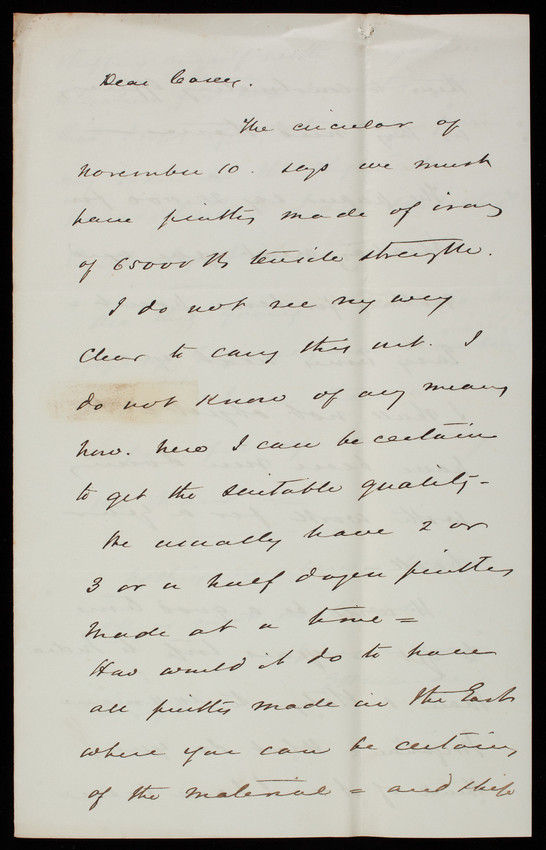 Dear Casey.
The circular of
November 10. says we must
have pintles made of iron
of 65000 lb tensile strength.
I do not see my way
clear to carry this out. I
do not know of any means
how. here I can be certain
to get the suitable quality -
We usually have 2 or
3 or a half dozen pintles
made at a time =
How would it do to have
all pintles made in the East
where you can be certain
of the material = and ship